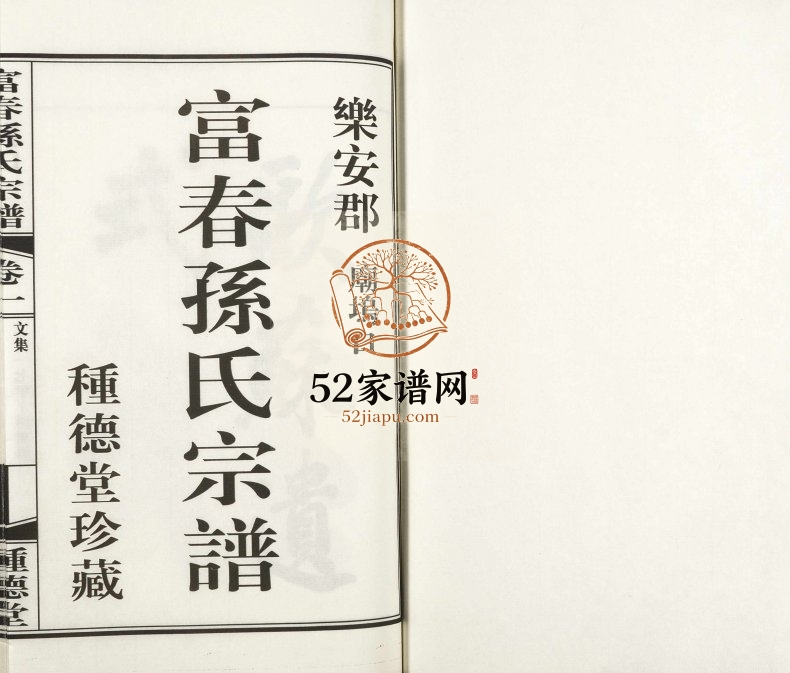 樂安郡
廟塢
富春孫氏宗譜
種德堂珍藏
富春孫氏宗譜
卷一
文集
種德堂
52家谱网
52jiapu.com